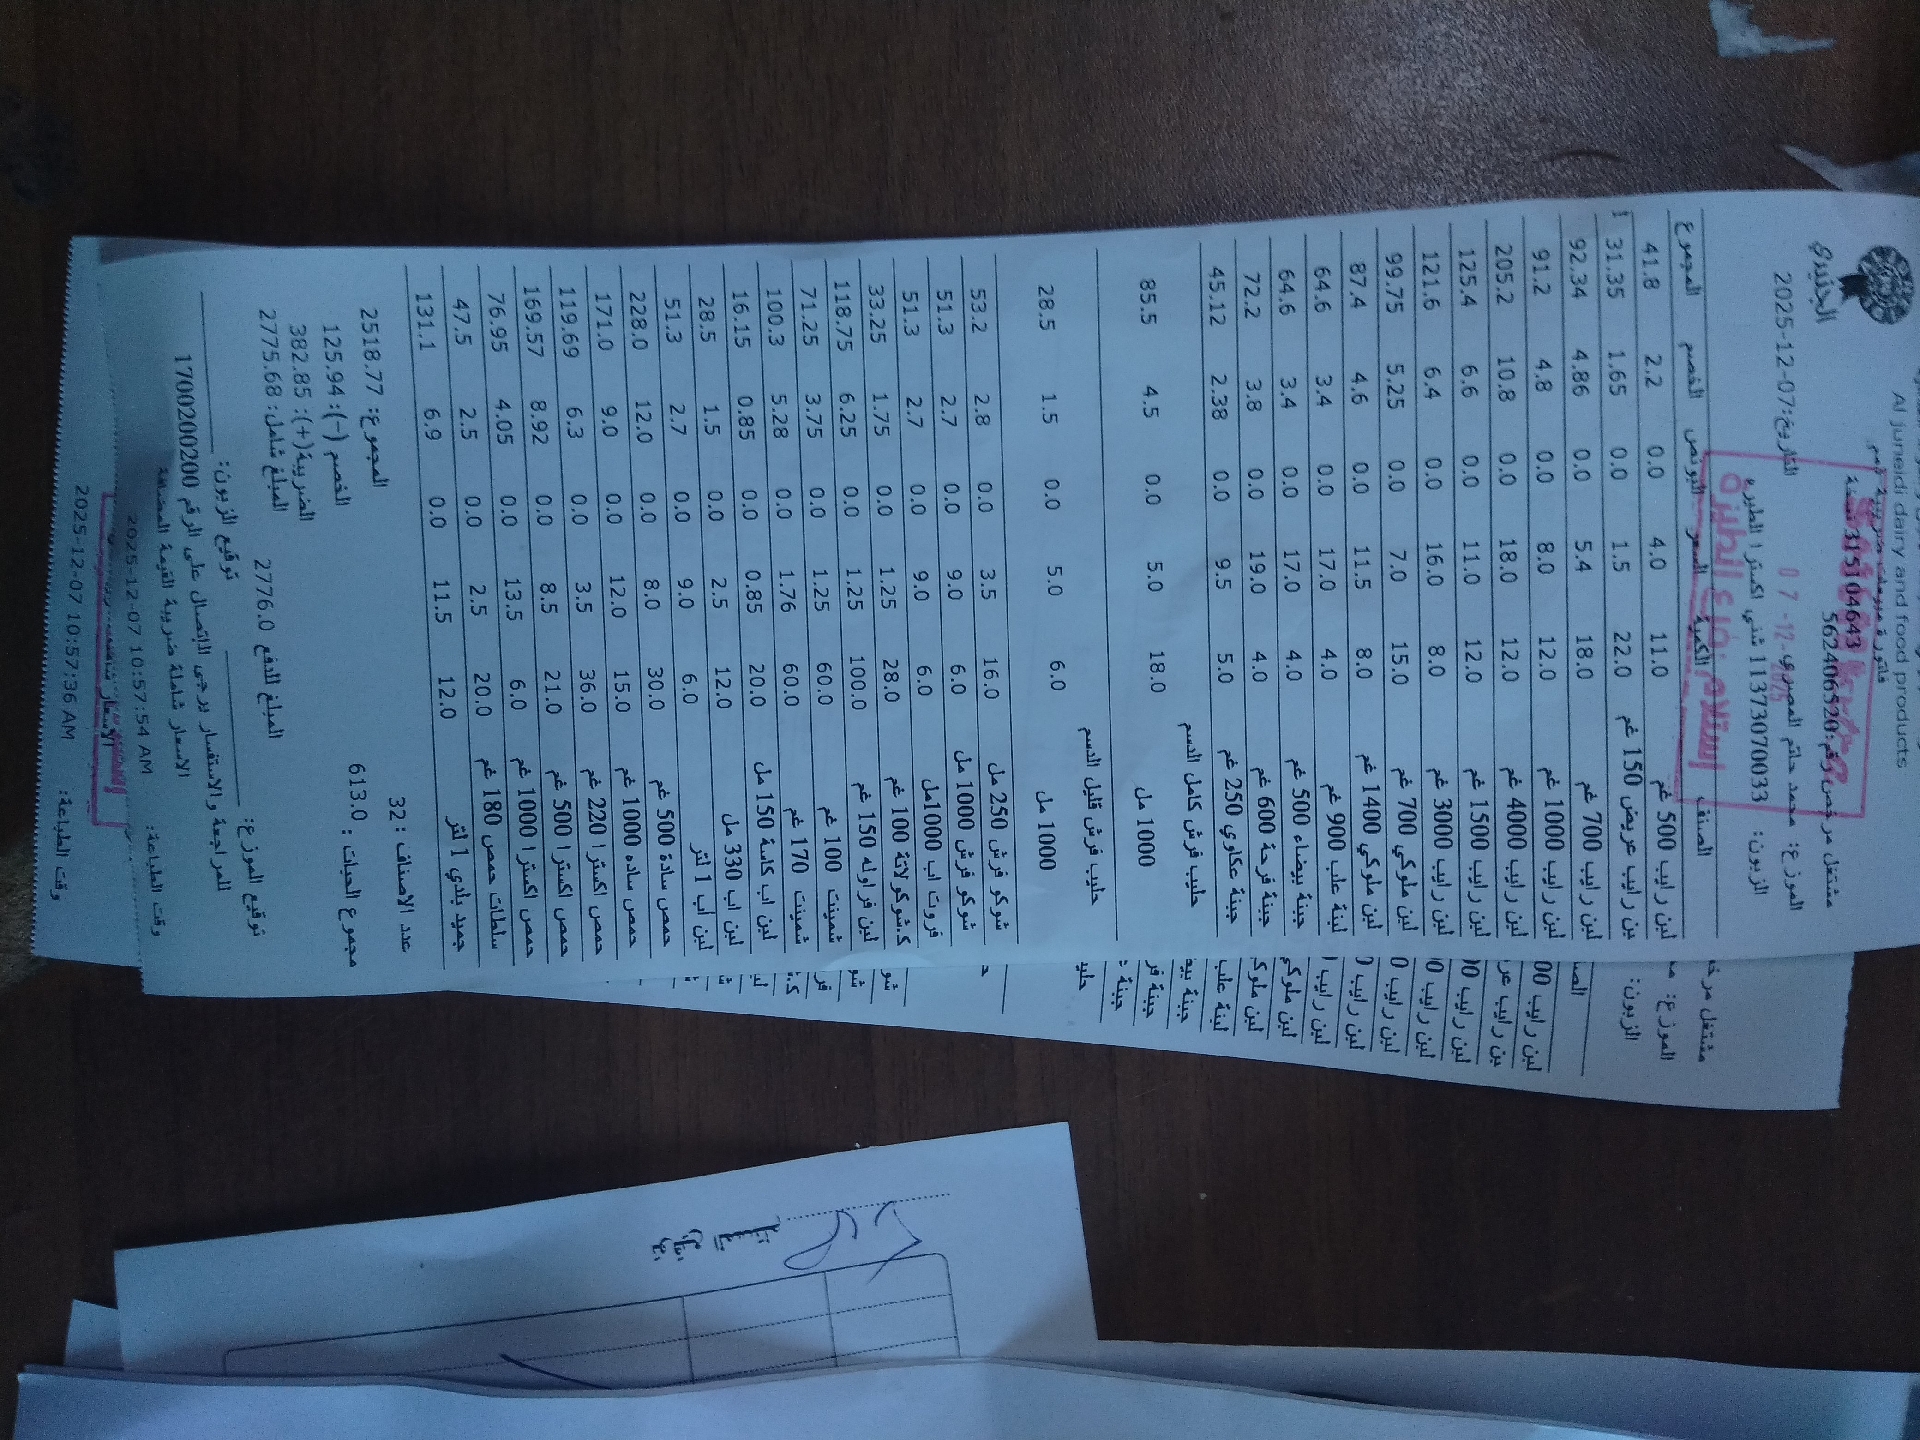 Al juneidi dairy and food products
الجنيدي
مشتغل مرخص رقم:562406520
التاريخ:2025-12-07
الموزع: محمد حاتم المصري
07-12-2025
الزبون: 1137307003 شني اكسترا الطيره
استلام فرع الطيرة
الصنف الكمية السعر البونص الخصم المجموع
لبن رايب 500 غم 11.0 4.0 0.0 2.2 41.8
بن رايب عريض 150 غم 22.0 1.5 0.0 1.65 31.35
لبن رايب 700 غم 18.0 5.4 0.0 4.86 92.34
لبن رايب 1000 غم 12.0 8.0 0.0 4.8 91.2
لبن رايب 4000 غم 12.0 18.0 0.0 10.8 205.2
لبن رايب 1500 غم 12.0 11.0 0.0 6.6 125.4
لبن رايب 3000 غم 8.0 16.0 0.0 6.4 121.6
لبن ملوكي 700 غم 15.0 7.0 0.0 5.25 99.75
لبن ملوكي 1400 غم 8.0 11.5 0.0 4.6 87.4
لبنة علب 900 غم 4.0 17.0 0.0 3.4 64.6
جبنة بيضاء 500 غم 4.0 17.0 0.0 3.4 64.6
جبنة فرحة 600 غم 4.0 19.0 0.0 3.8 72.2
جبنة عكاوي 250 غم 5.0 9.5 0.0 2.38 45.12
حليب فرش كامل الدسم
1000 مل 18.0 5.0 0.0 4.5 85.5
حليب فرش قليل الدسم
1000 مل 6.0 5.0 0.0 1.5 28.5
شوكو فرش 250 مل 16.0 3.5 0.0 2.8 53.2
شوكو فرش 1000 مل 6.0 9.0 0.0 2.7 51.3
فروت اب 1000مل 6.0 9.0 0.0 2.7 51.3
ك.شوكولاتة 100 غم 28.0 1.25 0.0 1.75 33.25
لبن فراوله 150 غم 100.0 1.25 0.0 6.25 118.75
شمينت 100 غم 60.0 1.25 0.0 3.75 71.25
شمينت 170 غم 60.0 1.76 0.0 5.28 100.3
لبن اب كاسة 150 مل 20.0 0.85 0.0 0.85 16.15
لبن اب 330 مل 12.0 2.5 0.0 1.5 28.5
لبن اب 1 لتر 6.0 9.0 0.0 2.7 51.3
حمص سادة 500 غم 30.0 8.0 0.0 12.0 228.0
حمص ساده 1000 غم 15.0 12.0 0.0 9.0 171.0
حمص اكسترا 220 غم 36.0 3.5 0.0 6.3 119.69
حمص اكسترا 500 غم 21.0 8.5 0.0 8.92 169.57
حمص اكسترا 1000 غم 6.0 13.5 0.0 4.05 76.95
سلطات حمص 180 غم 20.0 2.5 0.0 2.5 47.5
جميد بلدي 1 لتر 12.0 11.5 0.0 6.9 131.1
عدد الاصناف : 32
المجموع: 2518.77
مجموع الحبات : 613.0
الخصم (-): 125.94
الضريبة(+): 382.85
المبلغ شامل: 2775.68
المبلغ الدفع 2776.0
توقيع الموزع:
توقيع الزبون:
للمراجعة والاستفسار يرجى الاتصال على الرقم 1700200200
الاسعار شاملة ضريبة القيمة المضافة
وقت الطباعة: 2025-12-07 10:57:54 AM
وقت الطباعة: 2025-12-07 10:57:36 AM